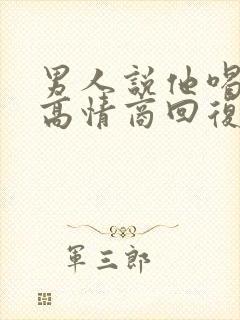 男人說他喝
高情商回復
軍三郎